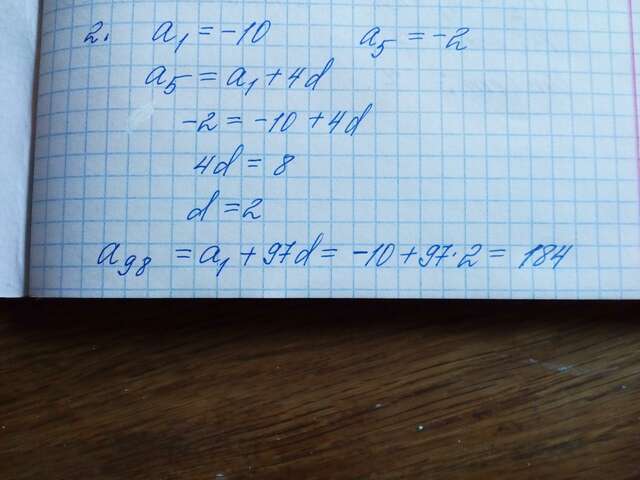 2. a₁ = -10 a₅ = -2
a₅ = a₁ + 4d
-2 = -10 + 4d
4d = 8
d = 2
a₉₈ = a₁ + 97d = -10 + 97·2 = 184